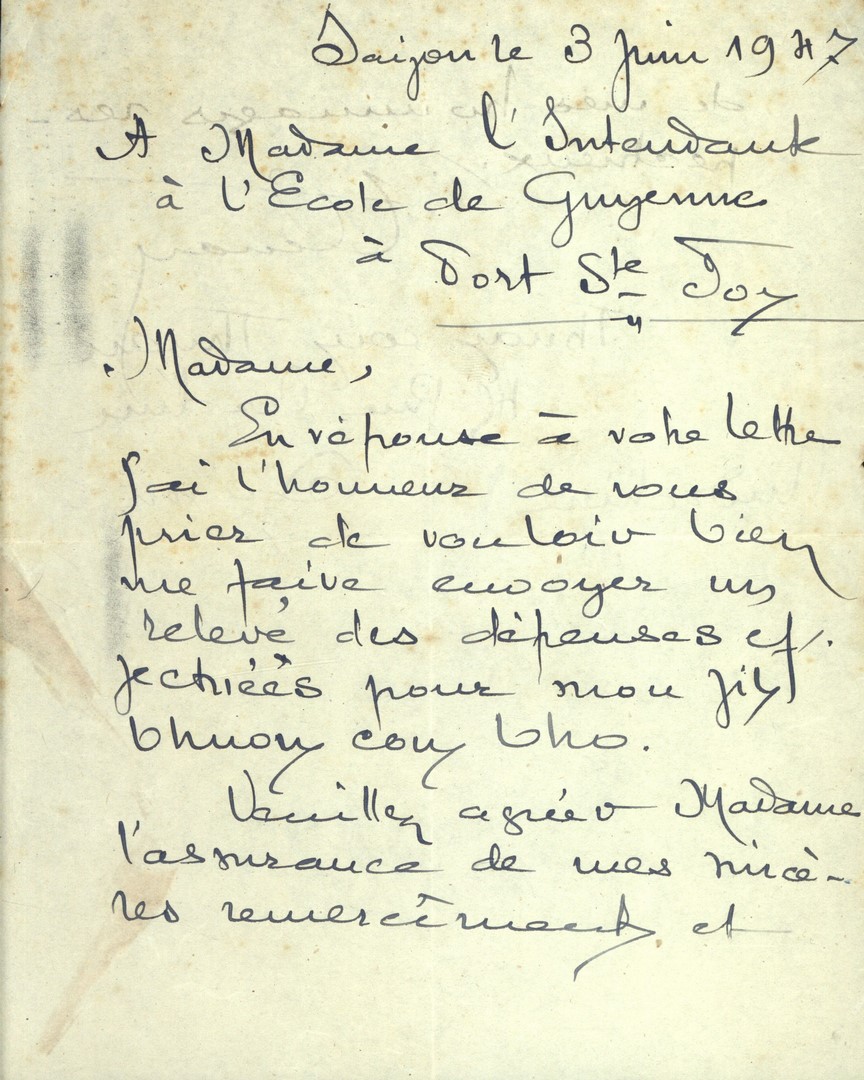 Saigon le 3 Juin 1947
A Madame l'Intendante
à l'Ecole de Guyenne
à Port Ste Foy
Madame,
En réponse à votre lettre
j'ai l'honneur de vous
prier de vouloir bien
me faire envoyer un
relevé des dépenses ef-
fectuées pour mon fils
Thuong Cong Tho.
Veuillez agréer Madame
l'assurance de mes sincè-
res remerciments et